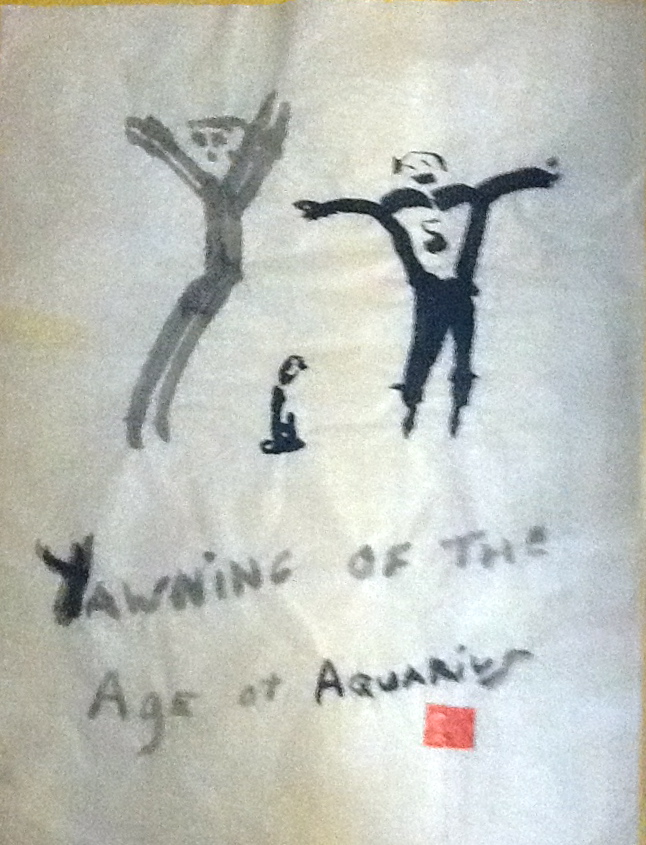 YAWNiNG OF THE
Age of AQUARiUS